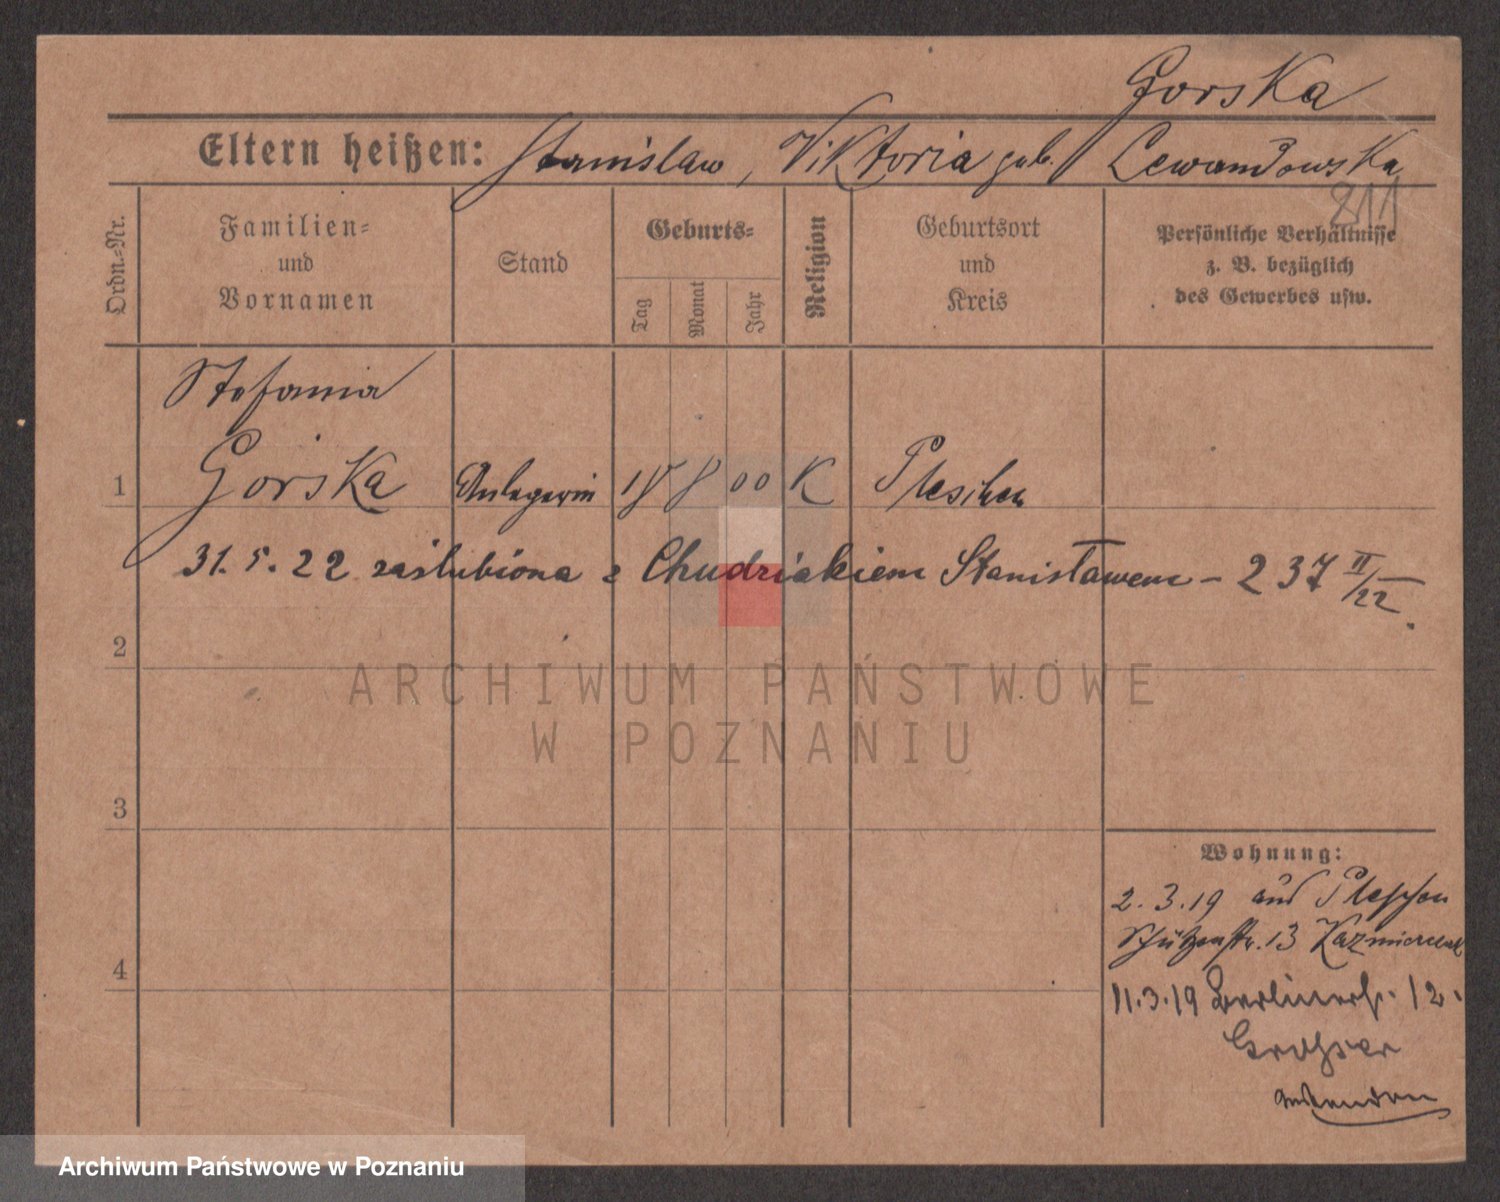 Gorska
Eltern heißen: Stanislaw, Viktoria geb. Lewandowska
211
Ordn.-Nr.
Familien- und Vornamen
Stand
Geburts-
Tag
Monat
Jahr
Religion
Geburtsort und Kreis
Persönliche Verhältnisse z. B. bezüglich des Gewerbes usw.
Stefania
1 Gorska 18 8 00 K Pleschen
31.5.22 zaślubiona z Chudziakiem Stanisławem – 237 II/22.
2
3
4
Wohnung:
2.3.19 aus Pleschen
Schützenstr. 13 Kazmierczak
11.3.19 Berlinerstr. 12.
ARCHIWUM PAŃSTWOWE
W POZNANIU
Archiwum Państwowe w Poznaniu